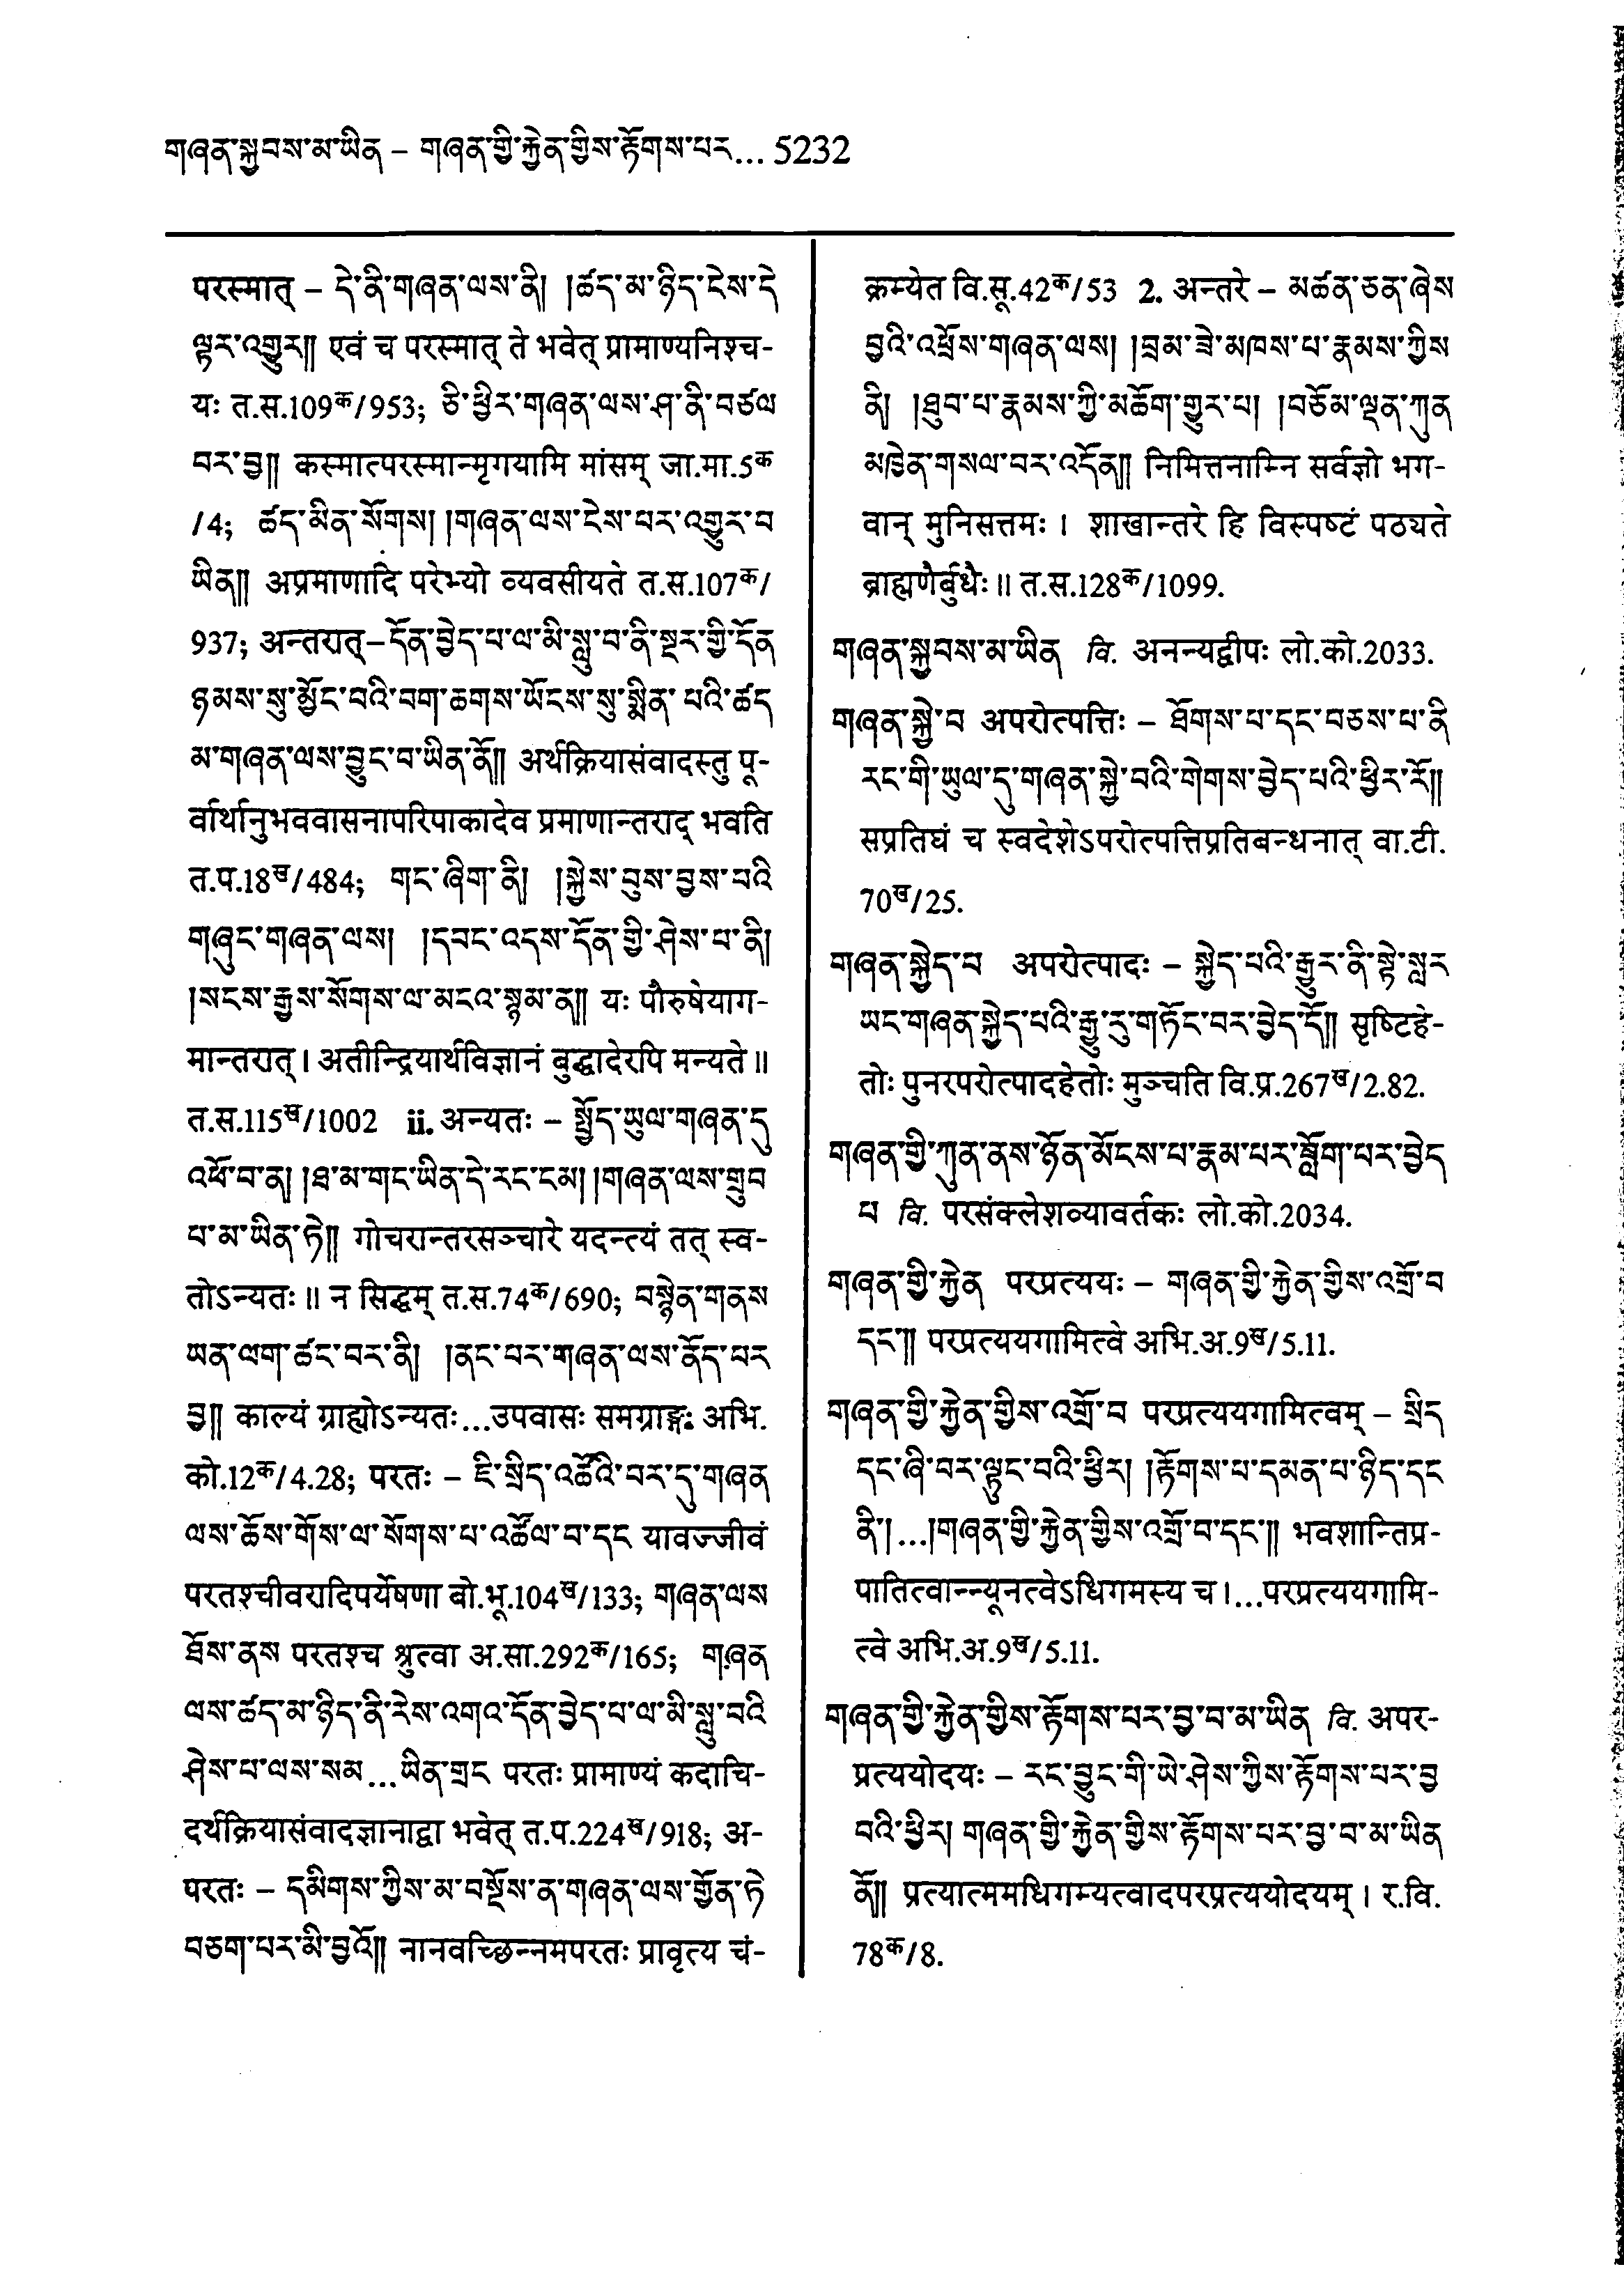 གཞན་སྐྱབས་མ་ཡིན – གཞན་གྱི་རྐྱེན་གྱིས་རྟོགས་པར... 5232
परस्मात् – དེ་ནི་གཞན་ལས་ནི། །ཚད་མ་ཉིད་ངེས་དེ
ལྟར་འགྱུར།། एवं च परस्मात् ते भवेत् प्रामाण्यनिश्च-
यः त.स.109क/953; ཅི་ཕྱིར་གཞན་ལས་ཤ་ནི་བཙལ
བར་བྱ།། कस्मात्परस्मान्मृगयामि मांसम् जा.मा.5क
/4; ཚད་མིན་སོགས། །གཞན་ལས་ངེས་པར་འགྱུར་བ
ཡིན།། अप्रमाणादि परेभ्यो व्यवसीयते त.स.107क/
937; अन्तरात्–དོན་བྱེད་པ་ལ་མི་སླུ་བ་ནི་སྔར་གྱི་དོན
ཉམས་སུ་མྱོང་བའི་བག་ཆགས་ཡོངས་སུ་སྨིན་ པའི་ཚད
མ་གཞན་ལས་བྱུང་བ་ཡིན་ནོ།། अर्थक्रियासंवादस्तु पू-
र्वार्थानुभववासनापरिपाकादेव प्रमाणान्तराद् भवति
त.प.18ख/484; གང་ཞིག་ནི། །སྐྱེས་བུས་བྱས་བའི
གཞུང་གཞན་ལས། །དབང་འདས་དོན་གྱི་ཤེས་པ་ནི།
།སངས་རྒྱས་སོགས་ལ་མངའ་སྙམ་ན།། यः पौरुषेयाग-
मान्तरात्। अतीन्द्रियार्थविज्ञानं बुद्धादेरपि मन्यते॥
त.स.115ख/1002 ii. अन्यतः – སྤྱོད་ཡུལ་གཞན་དུ
འཕོ་བ་ན། །ཐ་མ་གང་ཡིན་དེ་རང་ངམ། །གཞན་ལས་གྲུབ
པ་མ་ཡིན་ཏེ།། गोचरान्तरसञ्चारे यदन्त्यं तत् स्व-
तोऽन्यतः॥ न सिद्धम् त.स.74क/690; བསྙེན་གནས
ཡན་ལག་ཚང་བར་ནི། །ནང་པར་གཞན་ལས་ནོད་པར
བྱ།། काल्यं ग्राह्योऽन्यतः...उपवासः समग्राङ्गः अभि.
को.12क/4.28; परतः – ཇི་སྲིད་འཚོའི་བར་དུ་གཞན
ལས་ཆོས་གོས་ལ་སོགས་པ་འཚོལ་བ་དང यावज्जीवं
परतश्चीवरादिपर्येषणा बो.भू.104ख/133; གཞན་ལས
ཐོས་ནས परतश्च श्रुत्वा अ.सा.292क/165; གཞན
ལས་ཚད་མ་ཉིད་ནི་རེས་འགའ་དོན་བྱེད་པ་ལ་མི་སླུ་བའི
ཤེས་པ་ལས་སམ...ཡིན་གྲང परतः प्रामाण्यं कदाचि-
दर्थक्रियासंवादज्ञानाद्वा भवेत् त.प.224ख/918; अ-
परतः – དམིགས་ཀྱིས་མ་བསྔོས་ན་གཞན་ལས་གྱོན་ཏེ
བཅག་པར་མི་བྱའོ།། नानवच्छिन्नमपरतः प्रावृत्य चं-
क्रम्येत वि.सू.42क/53 2. अन्तरे – མཚན་ཅན་ཞེས
བྱའི་འཕྲོས་གཞན་ལས། །བྲམ་ཟེ་མཁས་པ་རྣམས་ཀྱིས
ནི། །ཐུབ་པ་རྣམས་ཀྱི་མཆོག་གྱུར་པ། །བཅོམ་ལྡན་ཀུན
མཁྱེན་གསལ་བར་འདོན།། निमित्तनाम्नि सर्वज्ञो भग-
वान् मुनिसत्तमः। शाखान्तरे हि विस्पष्टं पठ्यते
ब्राह्मणैर्बुधैः॥ त.स.128क/1099.
གཞན་སྐྱབས་མ་ཡིན वि. अनन्यद्वीपः लो.को.2033.
གཞན་སྐྱེ་བ अपरोत्पत्तिः – ཐོགས་པ་དང་བཅས་པ་ནི
རང་གི་ཡུལ་དུ་གཞན་སྐྱེ་བའི་གེགས་བྱེད་པའི་ཕྱིར་རོ།།
सप्रतिघं च स्वदेशेऽपरोत्पत्तिप्रतिबन्धनात् वा.टी.
70ख/25.
གཞན་སྐྱེད་བ अपरोत्पादः – སྐྱེད་པའི་རྒྱུར་ནི་སྟེ་སླར
ཡང་གཞན་སྐྱེད་པའི་རྒྱུ་རུ་གཏོང་བར་བྱེད་དོ།། सृष्टिहे-
तोः पुनरपरोत्पादहेतोः मुञ्चति वि.प्र.267ख/2.82.
གཞན་གྱི་ཀུན་ནས་ཉོན་མོངས་པ་རྣམ་པར་བློག་པར་བྱེད
པ वि. परसंक्लेशव्यावर्तकः लो.को.2034.
གཞན་གྱི་རྐྱེན परप्रत्ययः – གཞན་གྱི་རྐྱེན་གྱིས་འགྲོ་བ
དང་།། परप्रत्ययगामित्वे अभि.अ.9ख/5.11.
གཞན་གྱི་རྐྱེན་གྱིས་འགྲོ་བ परप्रत्ययगामित्वम् – སྲིད
དང་ཞི་བར་ལྟུང་བའི་ཕྱིར། །རྟོགས་པ་དམན་པ་ཉིད་དང
ནི་། ...།གཞན་གྱི་རྐྱེན་གྱིས་འགྲོ་བ་དང་།། भवशान्तिप्र-
पातित्वान्न्यूनत्वेऽधिगमस्य च।...परप्रत्ययगामि-
त्वे अभि.अ.9ख/5.11.
གཞན་གྱི་རྐྱེན་གྱིས་རྟོགས་པར་བྱ་བ་མ་ཡིན वि. अपर-
प्रत्ययोदयः – རང་བྱུང་གི་ཡེ་ཤེས་ཀྱིས་རྟོགས་པར་བྱ
བའི་ཕྱིར། གཞན་གྱི་རྐྱེན་གྱིས་རྟོགས་པར་བྱ་བ་མ་ཡིན
ནོ།། प्रत्यात्ममधिगम्यत्वादपरप्रत्ययोदयम्। र.वि.
78क/8.